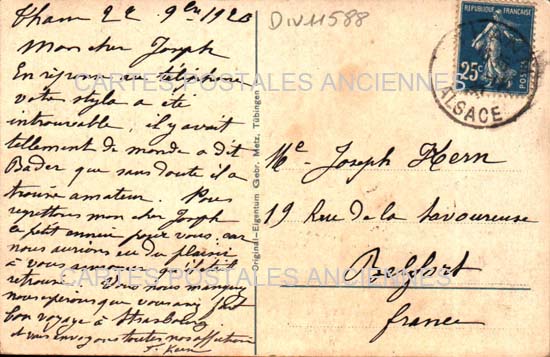 Thann 22 9bre 1920
Mon cher Joseph
En réponse au téléphone
votre stylo a été
introuvable; il y avait
tellement de monde a dit
Bader que sans doute il a
trouvé amateur. Nous
regrettons mon cher Joseph
ce petit ennui pour vous. car
nous aurions eu du plaisir
à vous
retrouvé
nous espérons que vous avez fait
bon voyage à Strasbourg
et vous envoyons toutes nos affections
J. Kern
DIV11588
CARTES POSTALES ANCIENNES
CARTES POSTALES ANCIENNES
Original-Eigentum Gebr. Metz, Tübingen
REPUBLIQUE FRANÇAISE
25c
POSTES
ALSACE
Mr Joseph Kern
19 Rue de la Savoureuse
Belfort
France